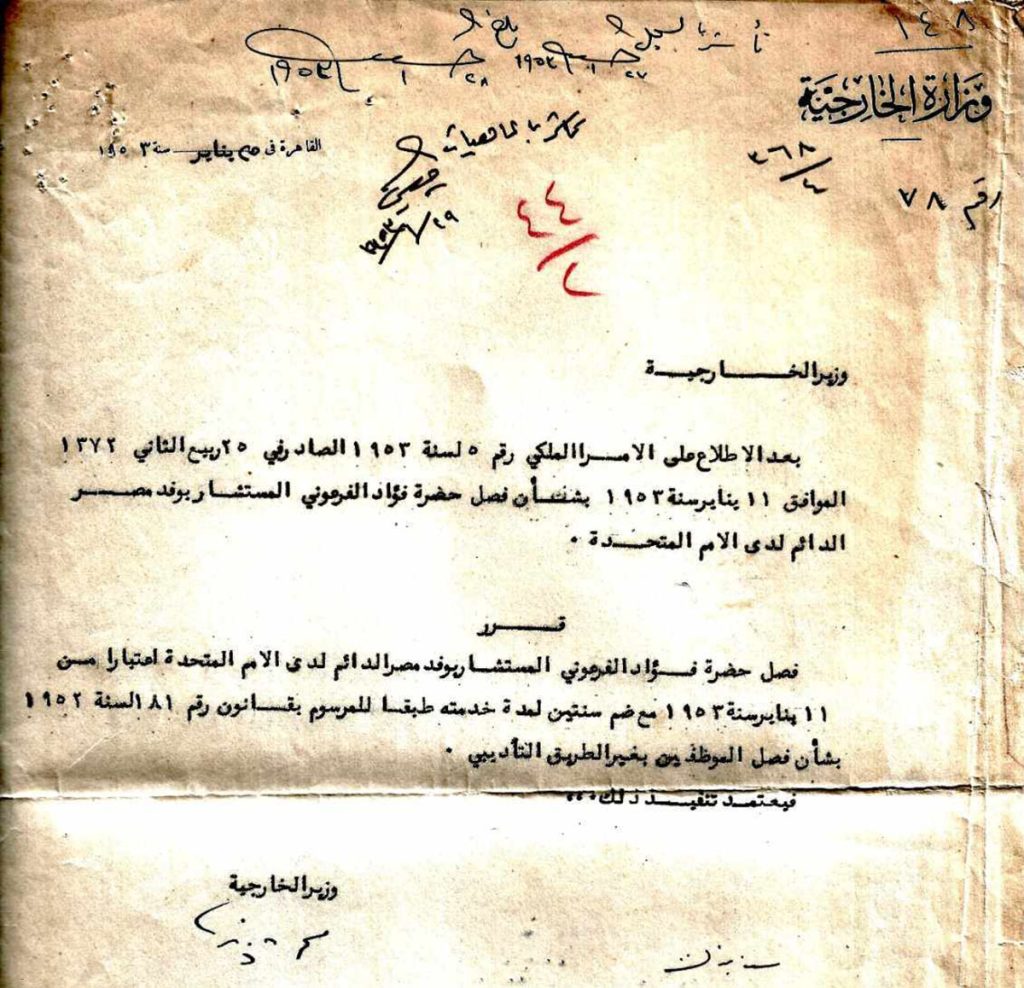 ١٤٨
وزارة الخارجية
٣٦٨/٤
رقم ٧٨
القاهرة في يناير سنة ١٩٥٣
٤٤/٢
وزير الخارجية
بعد الاطلاع على الامر الملكي رقم ٥ لسنة ١٩٥٣ الصادر في ٢٥ ربيع الثاني ١٣٧٢
الموافق ١١ يناير سنة ١٩٥٣ بشأن فصل حضرة فؤاد الفرعوني المستشار بوفد مصر
الدائم لدى الامم المتحدة .
قرر
فصل حضرة فؤاد الفرعوني المستشار بوفد مصر الدائم لدى الامم المتحدة اعتبارا من
١١ يناير سنة ١٩٥٣ مع ضم سنتين لمدة خدمته طبقا للمرسوم بقانون رقم ١٨١ لسنة ١٩٥٢
بشأن فصل الموظفين بغير الطريق التأديبي .
فيعتمد تنفيذ ذلك ...
وزير الخارجية